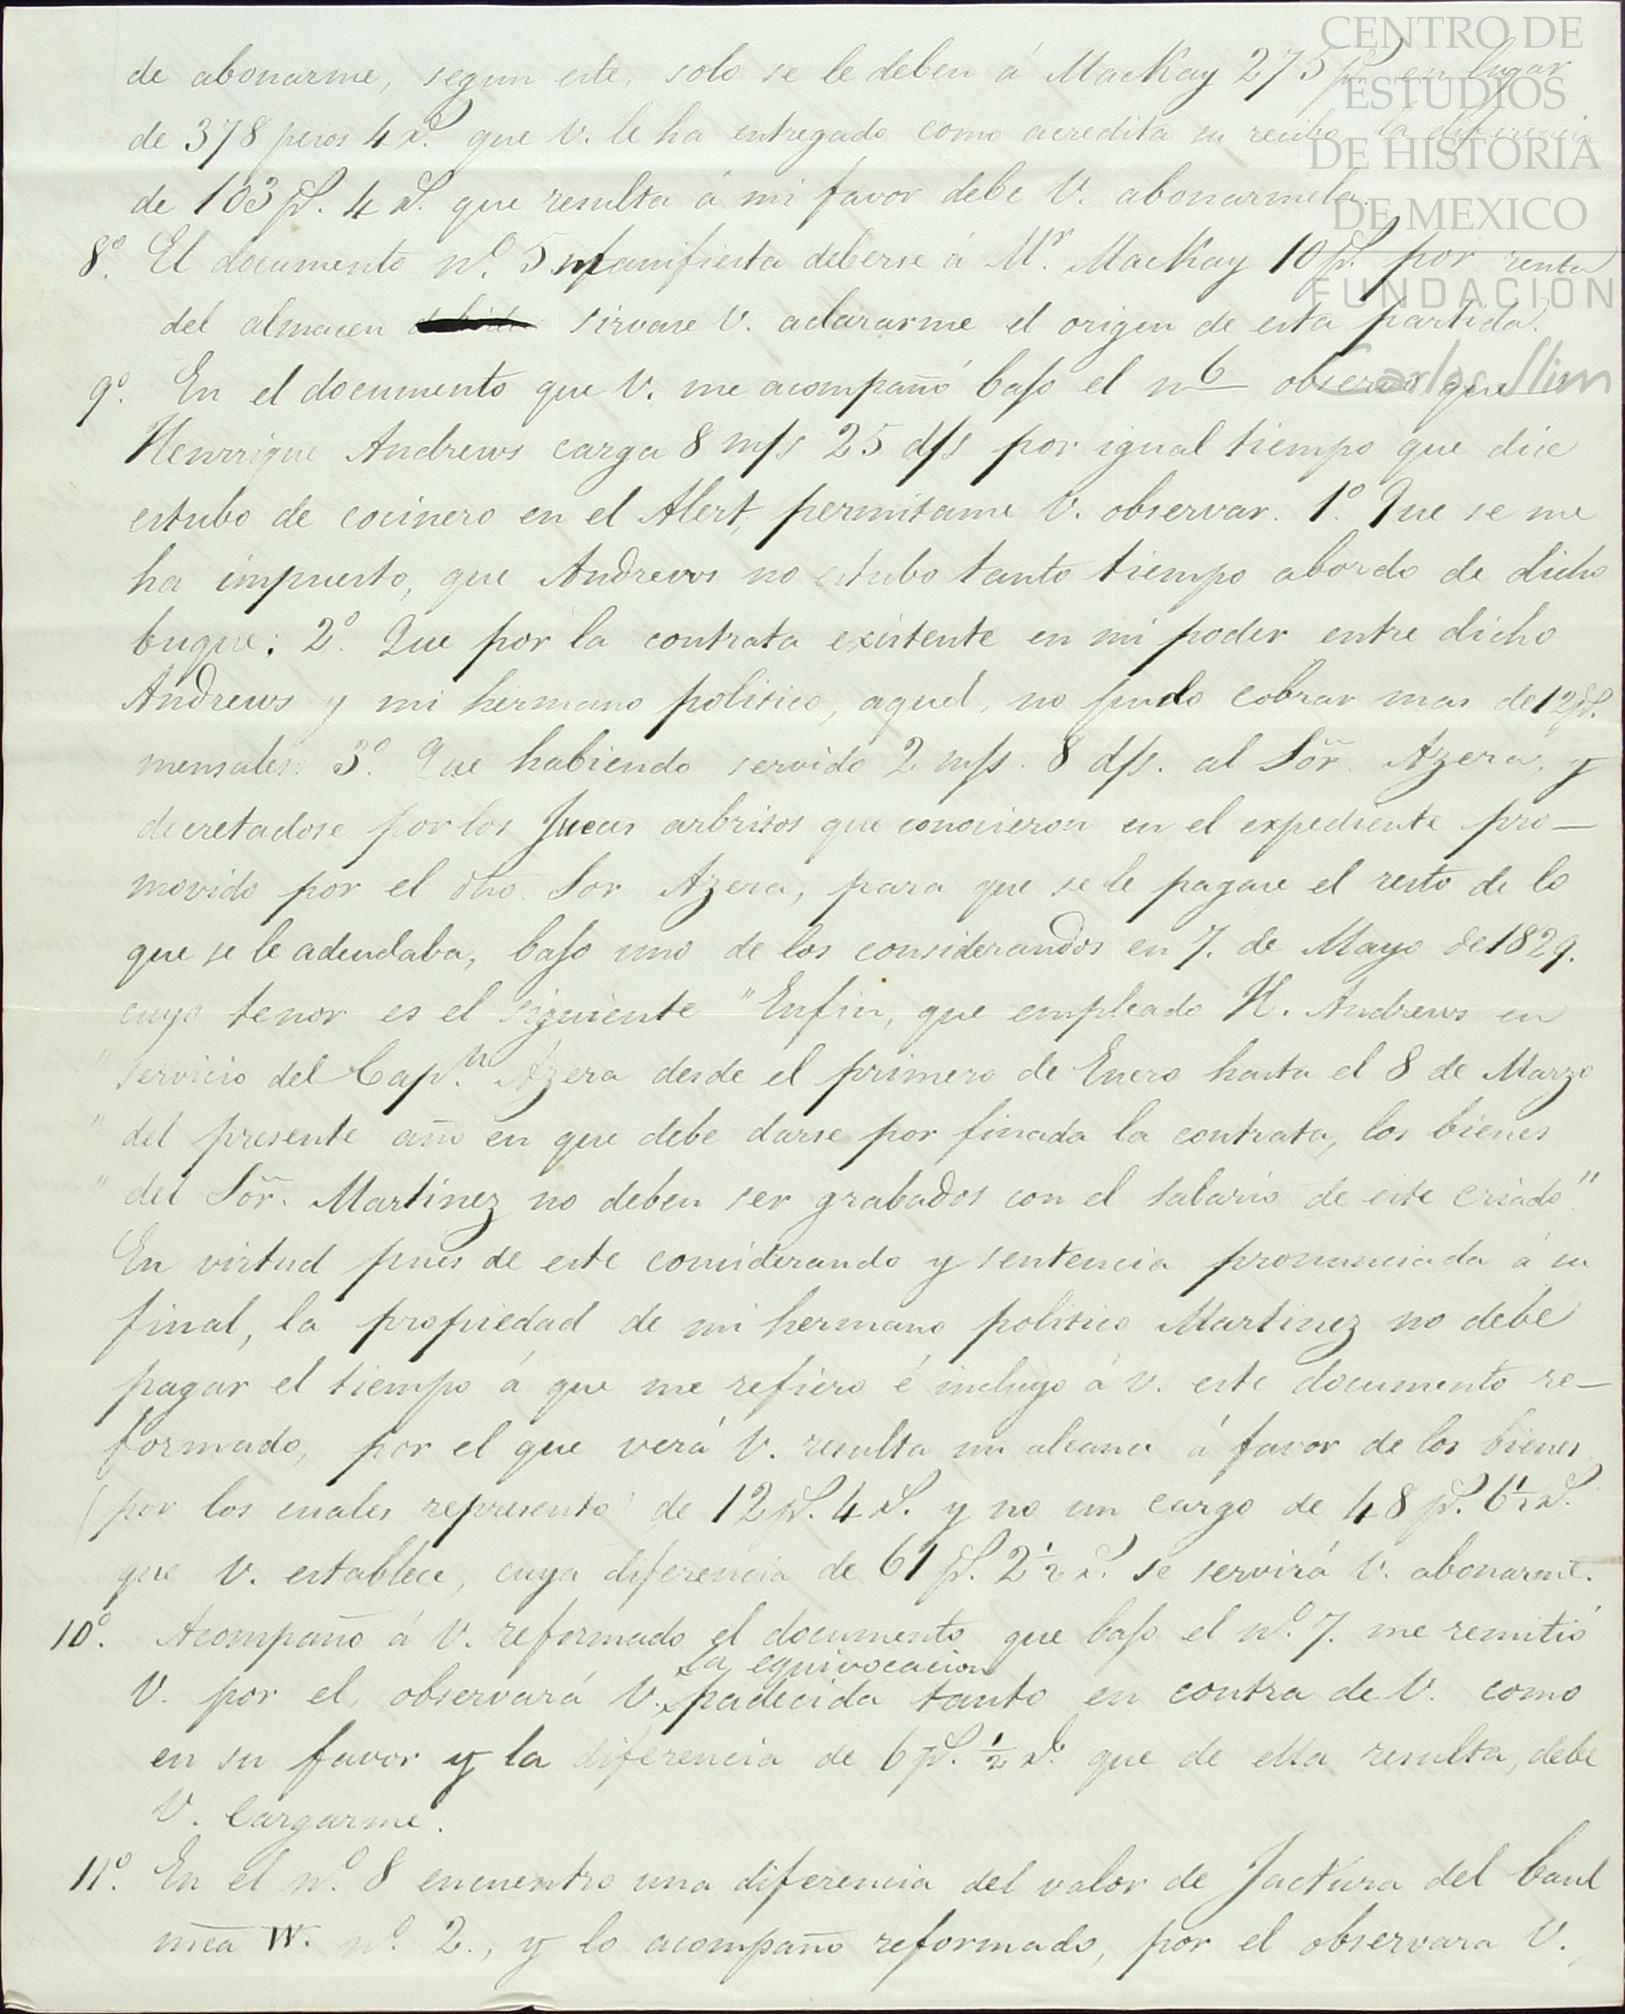 de abonarme, segun este, solo se le deben á MacKay 275 p.s en lugar
de 378 pesos 4 r.s que V. le ha entregado como acredita su recibo la diferencia
de 103 p.s 4 r.s que resulta á mi favor debe V. abonarmela.
8º. El documento nº. 5 manifiesta deberse á Mr. MacKay 10 p.s por renta
del almacen sirvase V. aclararme el origen de esta partida.
9º. En el documento que V. me acompañó bajo el nº 6 observo que
Henrrique Andrews carga 8 m/s 25 d/s por igual tiempo que dice
estubo de cocinero en el Alert, permitame V. observar. 1º. Que se me
ha impuesto, que Andrews no estubo tanto tiempo abordo de dicho
buque: 2º. Que por la contrata existente en mi poder entre dicho
Andrews y mi hermano politico, aquel, no pudo cobrar mas de 12 p.s
mensales: 3º. Que habiendo servido 2 m/s. 8 d/s. al Sõr. Azera, y
decretadose por los Jueces arbritos que conocieron en el expediente pro—
movido por el dho. Sor Azera, para que se le pagase el resto de lo
que se le adeudaba, bajo uno de los considerandos en 7. de Mayo de 1829.
cuyo tenor es el siguiente "Enfin, que empleado H. Andrews en
" servicio del Cap.n Azera desde el primero de Enero hasta el 8 de Marzo
" del presente año en que debe darse por finada la contrata, los bienes
" del Sõr. Martinez no deben ser grabados con el salario de este criado"
En virtud pues de este considerando y sentencia pronunciada á su
final, la propiedad de mi hermano politico Martinez no debe
pagar el tiempo á que me refiero é incluyo á V. este documento re—
formado, por el que verá V. resulta un alcance á favor de los bienes
(por los cuales represento) de 12 p.s 4 r.s y no un cargo de 48 p.s 6½ r.s
que V. establece, cuya diferencia de 61 p.s 2½ r.s se servirá V. abonarme.
10º. Acompaño á V. reformado el documento que bajo el nº. 7. me remitió
la equivocacion
V. por el, observará V. padecida tanto en contra de V. como
en su favor y la diferencia de 6 p.s ½ r.l que de ella resulta, debe
V. Cargarme.
11º. En el nº. 8 encuentro una diferencia del valor de Factura del baul
mca W. nº. 2., y lo acompaño reformado, por el observara V.
CENTRO DE
ESTUDIOS
DE HISTORIA
DE MEXICO
FUNDACIÓN
Carlos Slim